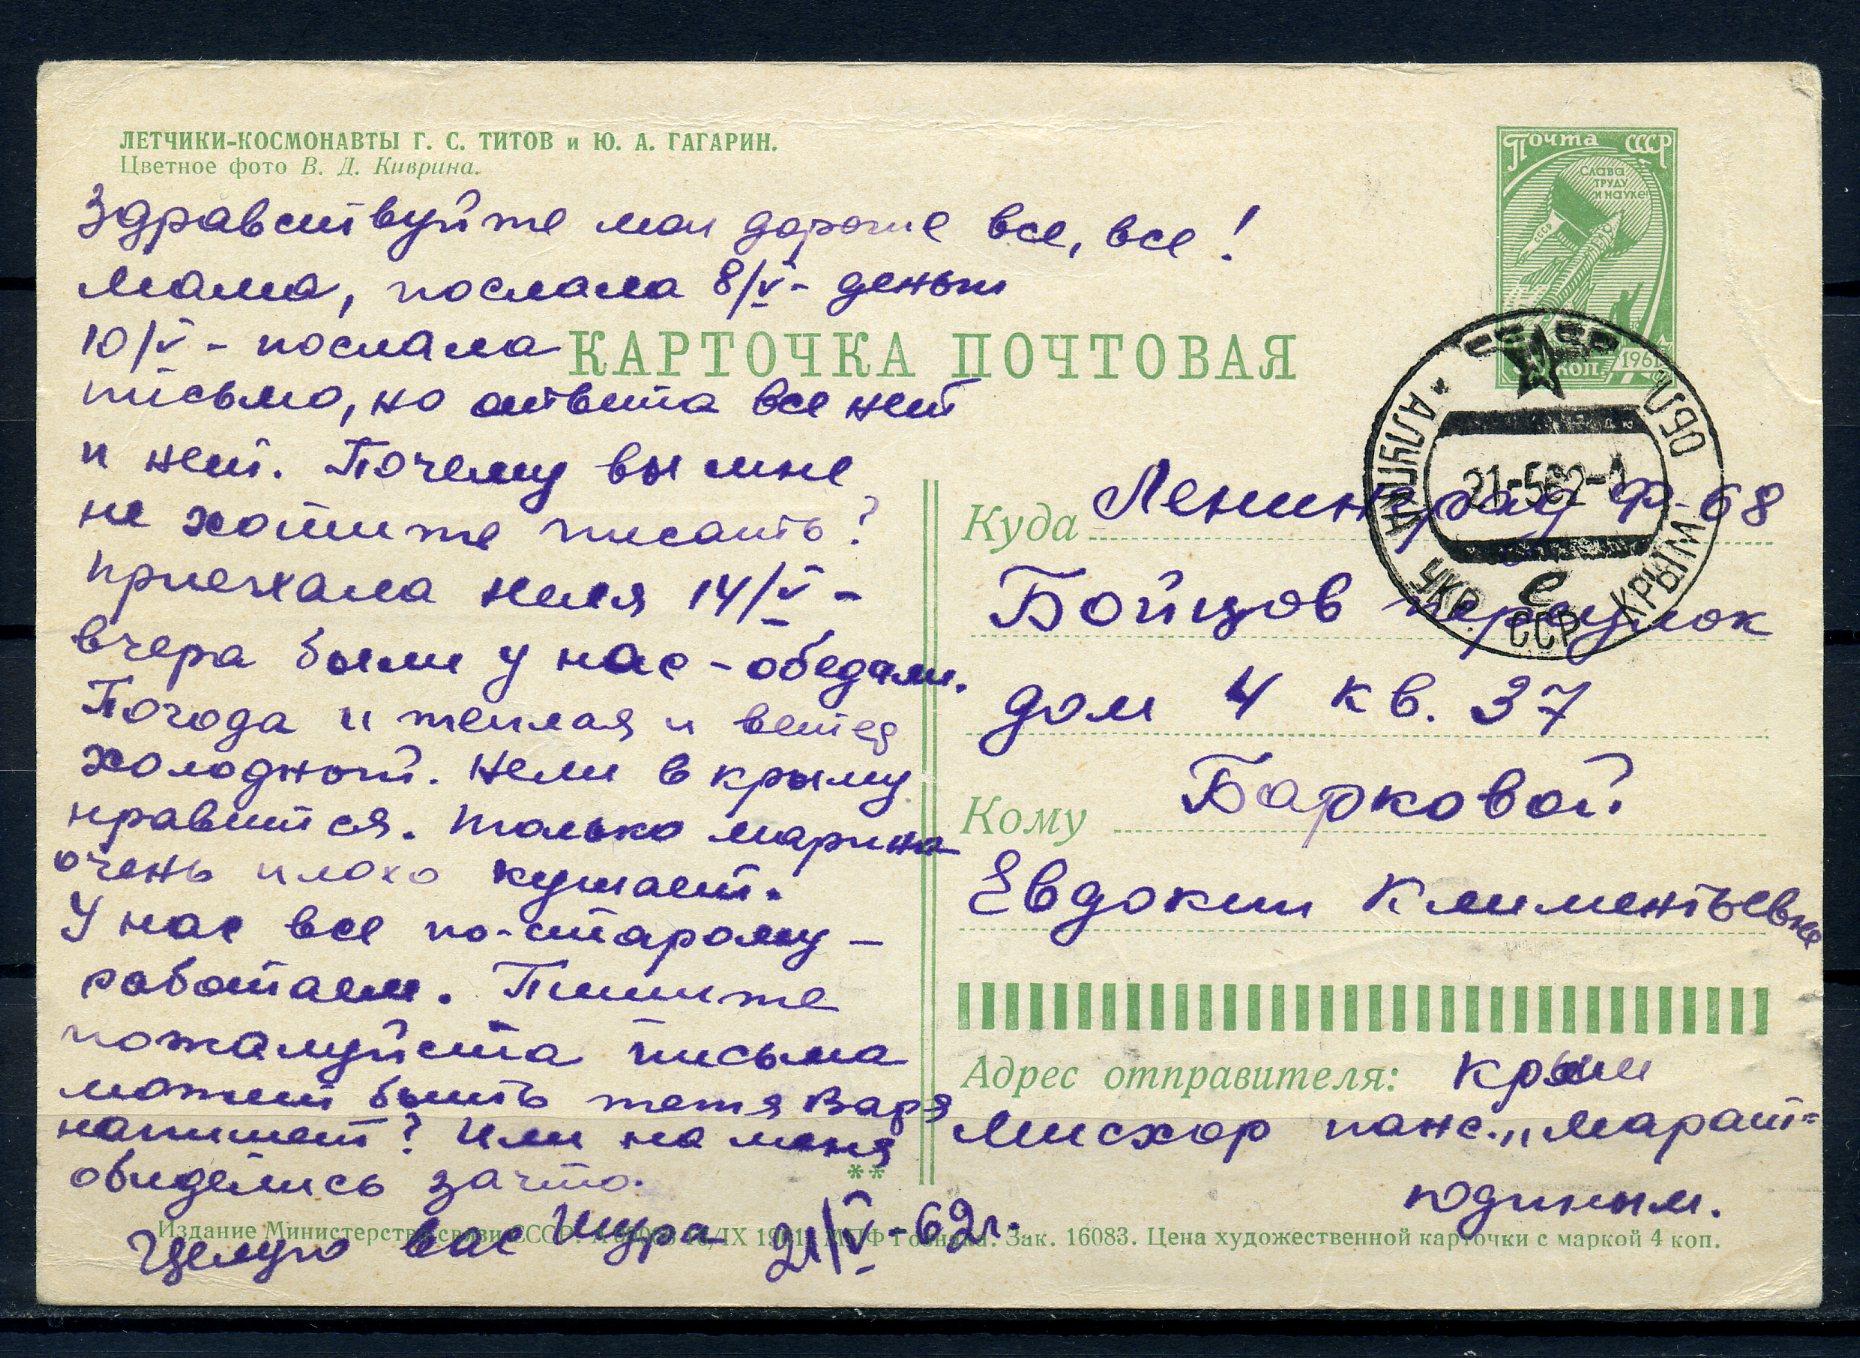 ЛЕТЧИКИ-КОСМОНАВТЫ Г. С. ТИТОВ и Ю. А. ГАГАРИН.
Цветное фото В. Д. Киврина.
Почта СССР
Слава
труду
и науке!
СССР
1961
4 коп.
Здравствуйте мои дорогие все, все!
Мама, послала 8/V - деньги
10/V - послала
КАРТОЧКА ПОЧТОВАЯ
письмо, но ответа все нет
и нет. Почему вы мне
не хотите писать?
приехала Неля 14/V -
вчера были у нас - обедали.
Погода и теплая и ветер
холодный. Нели в крыму
нравится. Только марина
очень плохо кушает.
У нас все по-старому -
работаем. Пишите
пожалуйста письма
может быть тетя Варя
напишет? Или на меня
обиделись за что.
Целую вас Шура 21/V - 62 г.
СССР
АЛУПКА КРЫМ ОБЛ
УКР. ССР
21-562-1
е
Куда Ленинград Ф-68
Бойцов переулок
дом 4 кв. 37
Кому Барковой
Евдокии Климентьевне
Адрес отправителя: Крым
Мисхор панс. „Марат"
**
Издание Министерства связи СССР. IX 1961. МПФ Гознака. Зак. 16083. Цена художественной карточки с маркой 4 коп.